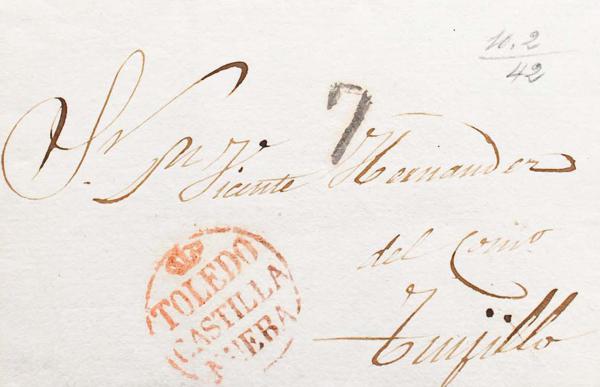 10.2
42
7
Sr. Dn. Vicente Hernandez
del Como
Trujillo
TOLEDO
CASTILLA
NUEBA